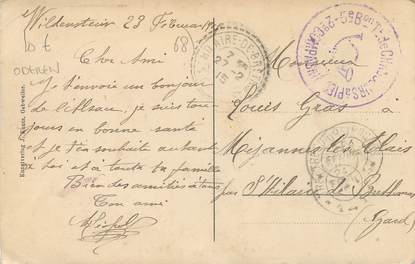 Wildenstein 23 Février 1915
68
D 7
ODEREN
Cher Ami
Je t'envoie un bonjour
de l'Alsace, je suis tou-
jours en bonne santé
et je t'en souhaite autant
toi et à toute ta famille
Bien des amitiés à tous
Ton ami
Monsieur
Louis Gras à
Mejannes les Alais
par St Hilaire de Brethmas
(Gard)